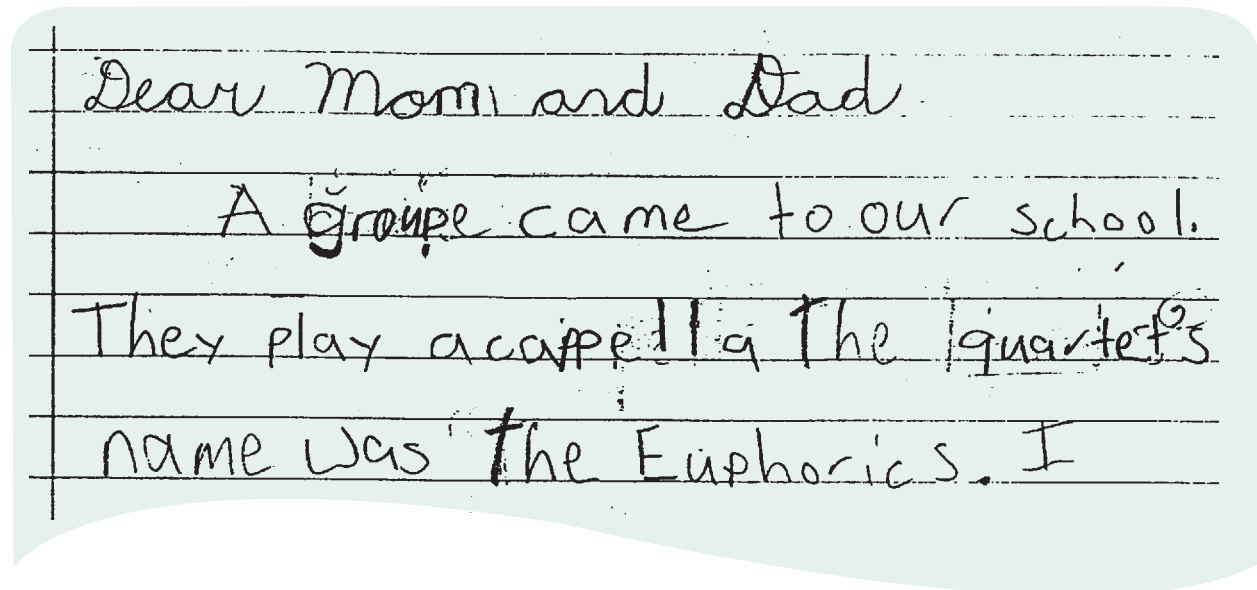 Dear Mom and Dad
A groupe came to our school.
They play acappella The quartet's
name was The Euphorics. I